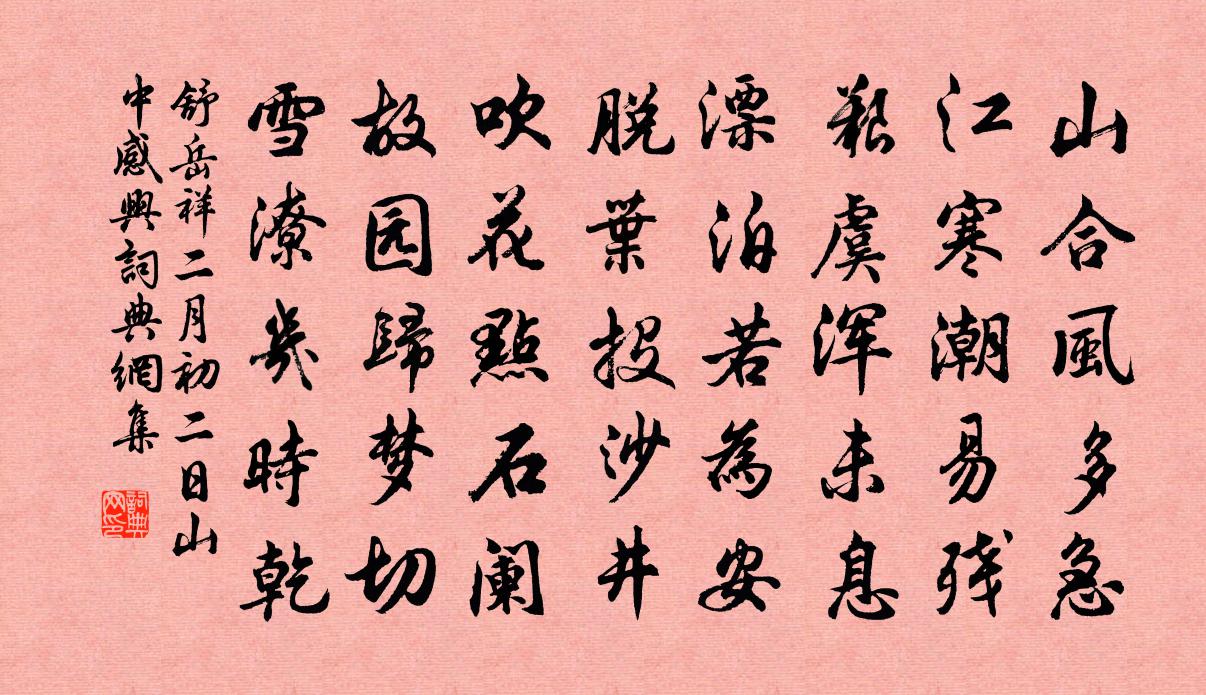 山合風多急
江寒潮易残
艱虞浑未息
漂泊若為安
脱葉投沙井
吹花點石阑
故园歸梦切
雪潦幾時乾
舒岳祥二月初二日山
中感興詞典網集
詞典
网印